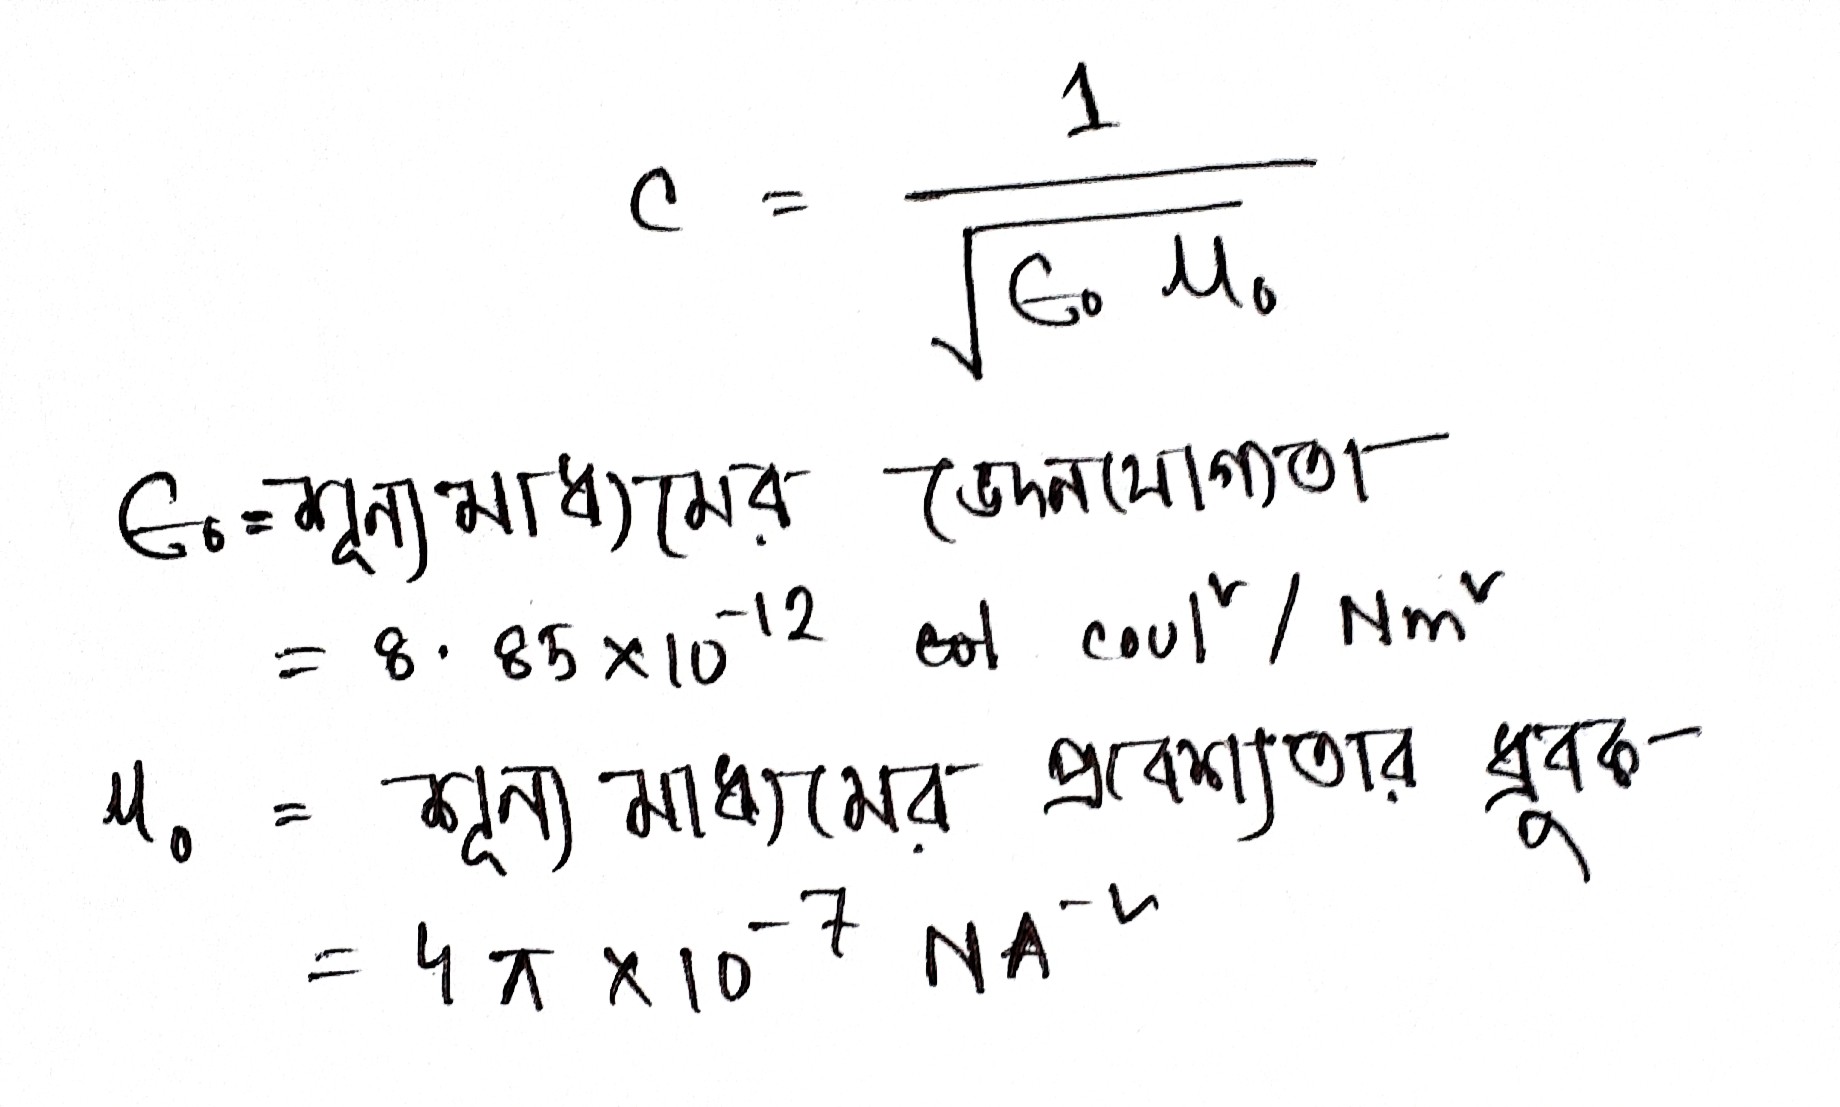 c = 1 / √(ϵ₀ μ₀)
ϵ₀ = শূন্য মাধ্যমের ভেদনযোগ্যতা
= 8.85 × 10⁻¹² coul² / Nm²
μ₀ = শূন্য মাধ্যমের প্রবেশ্যতার ধ্রুবক
= 4π × 10⁻⁷ NA⁻²